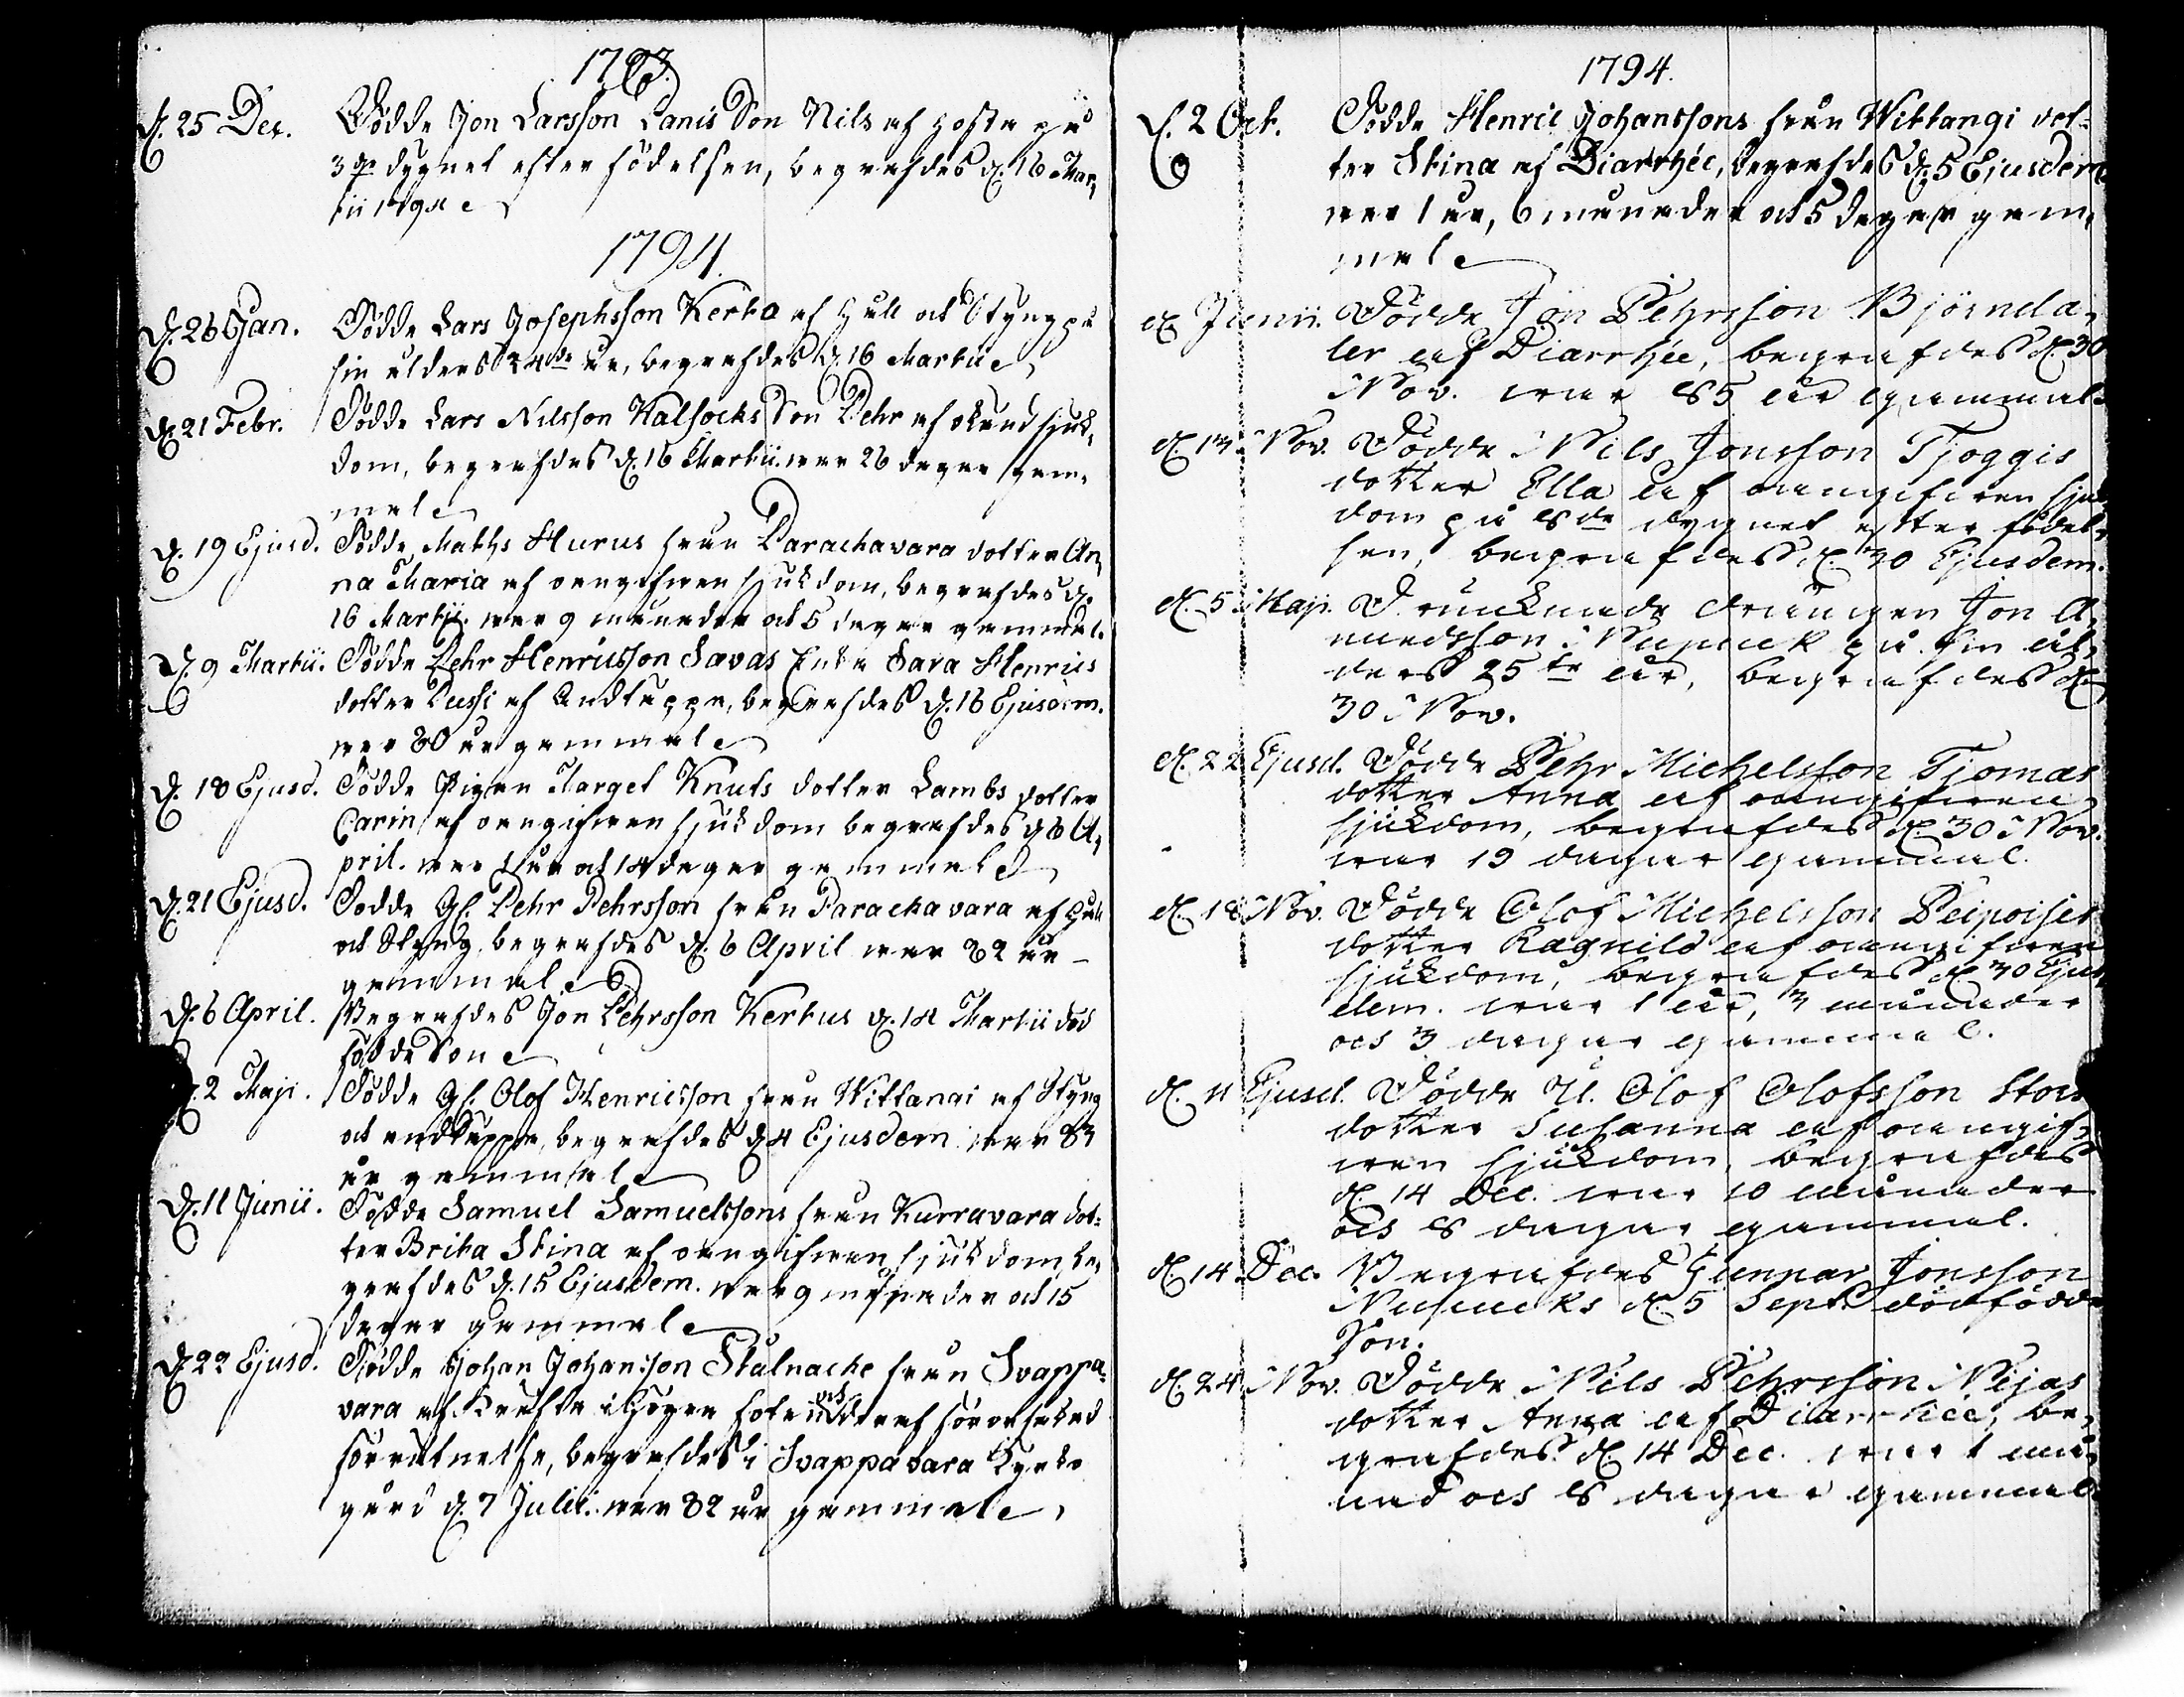 1793.
d. 25 Dec. Dödde Jon Larsson Lanis Son Nils af hosta på
3dje dygnet efter födelsen, begrafdes d. 16 Mar,
tii 1794
1794.
d. 26 Jan. Dödde Lars Josephsson Kerta af håll och Styng på
sin ålders 24de år, begrafdes d. 16 Martii
d. 21 Febr. Dödde Lars Nilsson Kalsocks Son Pehr af okänd sjuk,
dom, begrafdes d. 16 Martii. war 26 dagar gam,
mal
d. 19 Ejusd. Dödde Maths Hurus från Parackavara dotter An,
na Maria af oangifwen sjukdom, begrafdes d.
16 Martii. war 9 månader och 5 dagar gammal.
d. 9 Martii. Dödde Pehr Henricsson Savas Enka Sara Henrics
dotter Pussi af Andtäppa, begrafdes d. 16 Ejusdem.
war 80 år gammal
d. 18 Ejusd. Dödde Pigan Marget Knuts dotter Lambs dotter
Carin af oangifwen sjukdom begrafdes d. 6 A,
pril. war 1 år och 14 dagar gammal
d. 21 Ejusd. Dödde Gf. Pehr Pehrsson från Parackavara af håll
och Styng, begrafdes d. 6 April war 82 år
gammal
d. 6 April. Begrafdes Jon Pehrsson Kertus d. 14 Martii död
födde Son
2 Maji. Dödde Gf. Olof Henricsson från Wittangi af Styng
och andtäppa, begrafdes d. 4 Ejusdem war 83
år gammal
d. 11 Junii. Dödde Samuel Samuelssons från Kurravara dot:
ter Brita Stina af oangifwen sjukdom, be,
grafdes d. 15 Ejusdem. war 9 månader och 15
dagar gammal
d. 22 Ejusd. Dödde Johan Johansson Stålnacke från Svappa,
vara af Kräfta i högra foten och deraf förorsakad
förrutnelse, begrafdes i Svappavara Kyrko
gård d. 7 Julii. war 82 år gammal
1794.
d. 2 Oct. Dödde Henric Johanssons från Wittangi dot:
ter Stina af Diarrhée, begrafdes d. 5 Ejusdem
war 1 år, 6 månader och 5 dagar gam,
mal
d. Junii. Dödde Jon Pehrsson Björnda,
ler af Diarrhée, begrafdes d. 30
Nov. war 85 år gammal
d. 13 Nov. Dödde Nils Jonsson Tjoggis
dotter Ella af oangifwen sjuk
dom på 8de dygnet efter födel,
sen, begrafdes d. 30 Ejusdem.
d. 5 Maji. Drunknade drängen Jon A,
mundsson Nupuck på sin ål,
ders 25te år, begrafdes d.
30 Nov.
d. 22 Ejusd. Dödde Pehr Michelsson Tjomas
dotter Anna af oangifwen
sjukdom, begrafdes d. 30 Nov.
war 19 dagar gammal.
d. 18 Nov. Dödde Olof Michelsson Peipoises
dotter Ragnild af oangifwen
sjukdom, begrafdes d. 30 Ejus,
dem. war 1 år, 3 månader
och 3 dagar gammal.
d. 11 Ejusd. Dödde U. Olof Olofsson Stors
dotter Susanna af oangif,
wen sjukdom, begrafdes
d. 14 Dec. war 10 månader
och 8 dagar gammal.
d. 14 Dec. Begrafdes Gunnar Jonsson
Nupucks d. 5 Sept. dödfödde
Son.
d. 24 Nov. Dödde Nils Pehrsson Nijas
dotter Anna af Diarrhée, be,
grafdes d. 14 Dec. war 1 må,
nad och 8 dagar gammal